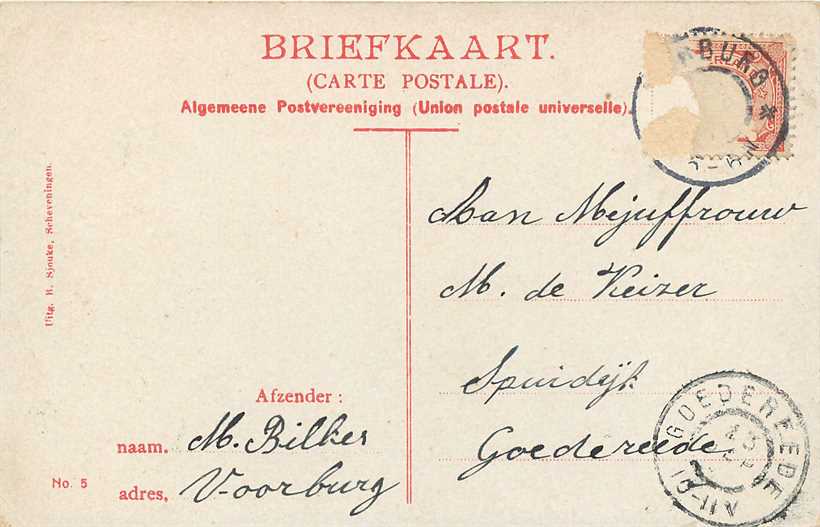 BRIEFKAART.
(CARTE POSTALE).
Algemeene Postvereeniging (Union postale universelle).
RBURG *
Uitg. R. Sjouke, Scheveningen.
Aan Mejuffrouw
M. de Keizer
Spuidijk
Goedereede.
Afzender :
naam. M. Bilker
adres, Voorburg
No. 5
GOEDEREEDE